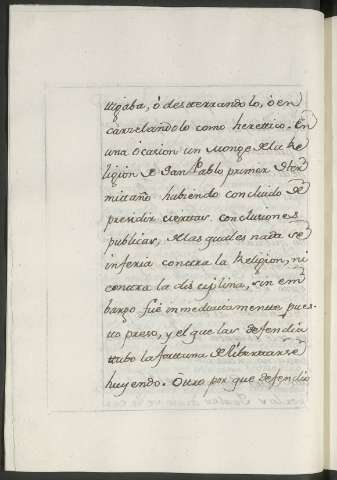 tigaba, ó desterrandolo, ó en
carzelandolo como herettico. En
una ócasion un Monge de la Re
ligión de San Pablo primer Her
mitaño habiendo concluido de
presidir ciertas conclusiones
publicas, de las quales nada se
inferia contra la Religion, ni
contra la disciplina, sin em
bargo fue immediatamente pues
to preso, y el que las defendia
tubo la fortuna de libertarse
huyendo. Otro por que defendio